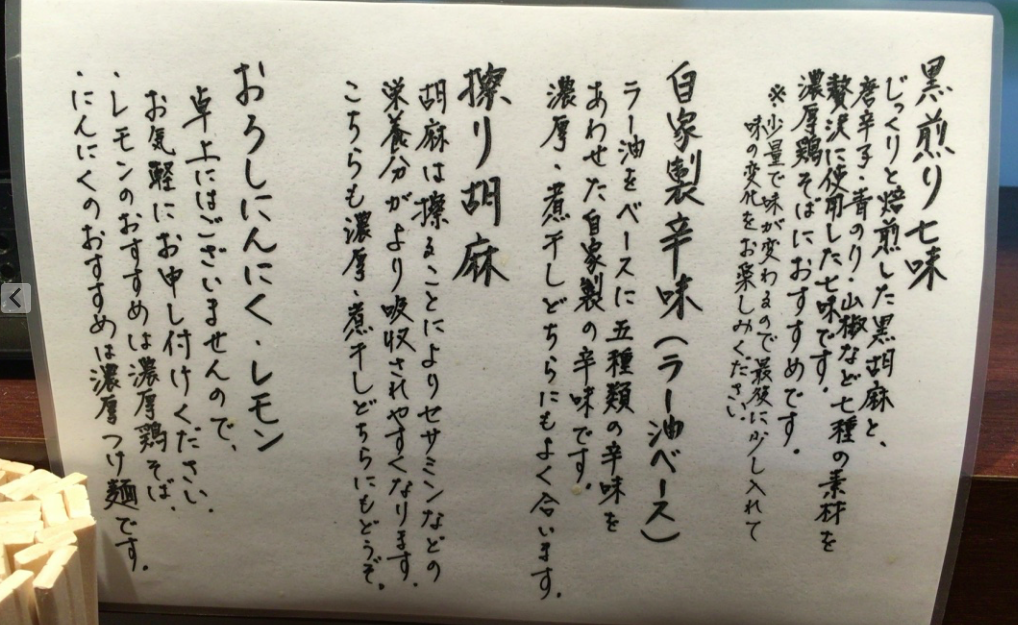 黒煎り七味
じっくりと焙煎した黒胡麻と、
唐辛子・青のり・山椒など七種の素材を
贅沢に使用した七味です。
濃厚鶏そばにおすすめです。
※少量で味が変わるので最後に少し入れて
味の変化をお楽しみください。
自家製辛味(ラー油ベース)
ラー油をベースに五種類の辛味を
あわせた自家製の辛味です。
濃厚・煮干しどちらにもよく合います。
擦り胡麻
胡麻は擦ることによりセサミンなどの
栄養分がより吸収されやすくなります。
こちらも濃厚・煮干しどちらにもどうぞ。
おろしにんにく・レモン
卓上にはございませんので、
お気軽にお申し付けください。
・レモンのおすすめは濃厚鶏そば、
・にんにくのおすすめは濃厚つけ麺です。